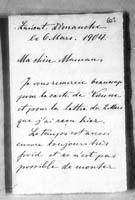 601
Lorient, Dimanche
le 6 Mars. 1904.
Ma chère Maman,
Je vous remercie beaucoup
pour la carte de Vannes
et pour la lettre du 2 Mars
que j'ai reçu hier.
Le temps est aussi
encore toujours très
froid et ce n'est pas
possible de monter